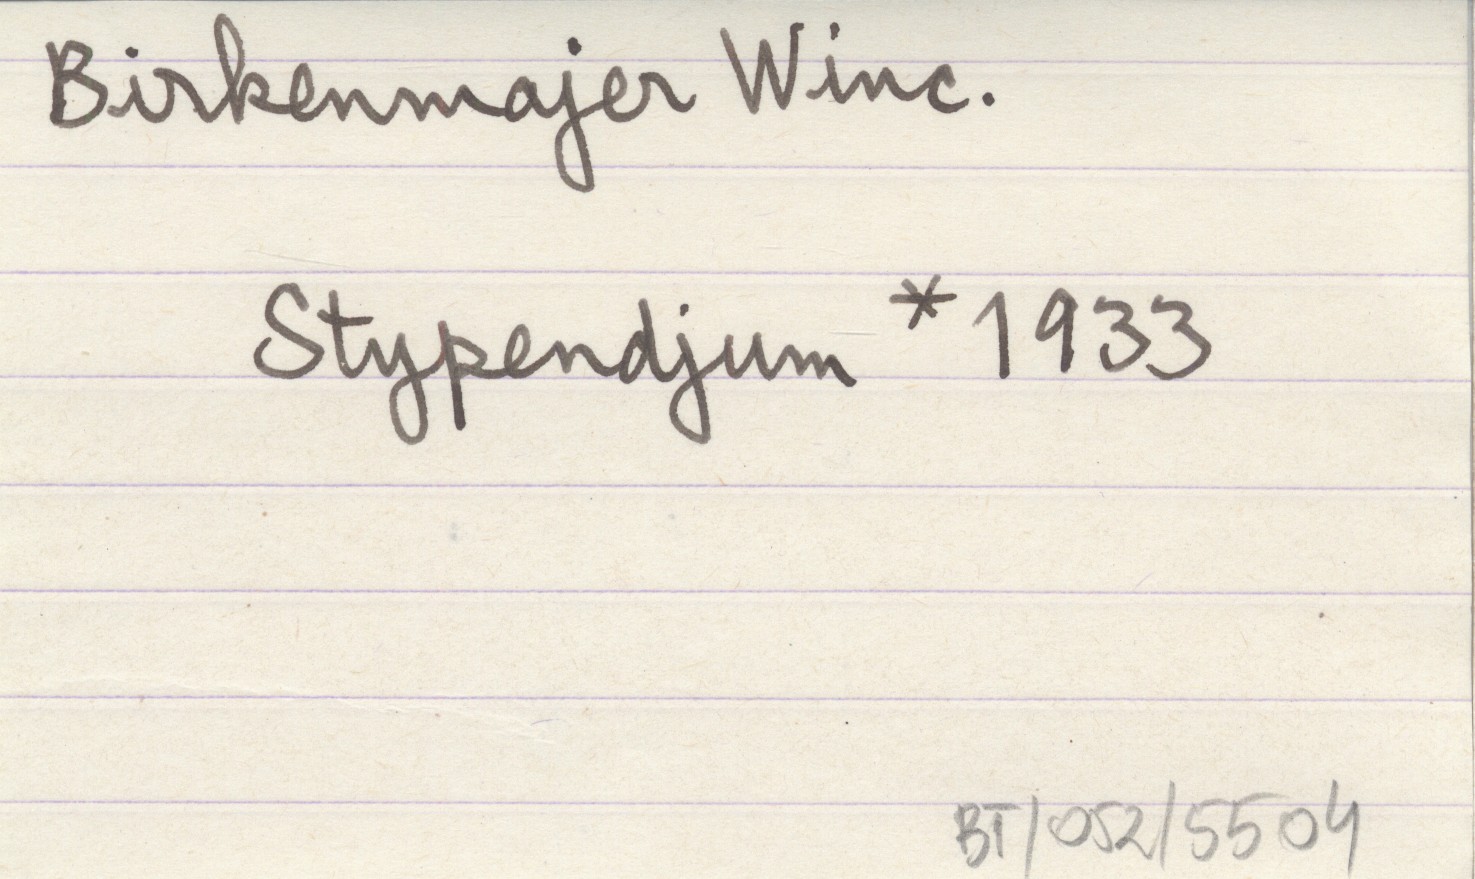 Birkenmajer Winc.
Stypendjum *1933
BT/052/5504